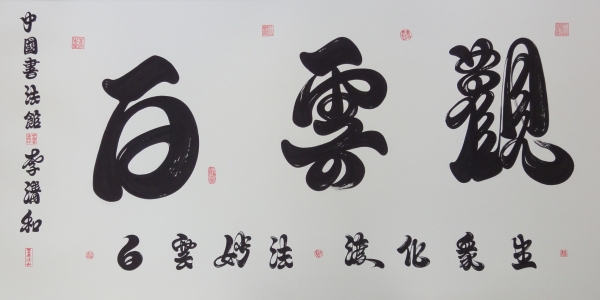 白雲觀
白雲妙法 渡化眾生
中國書法館 李 和